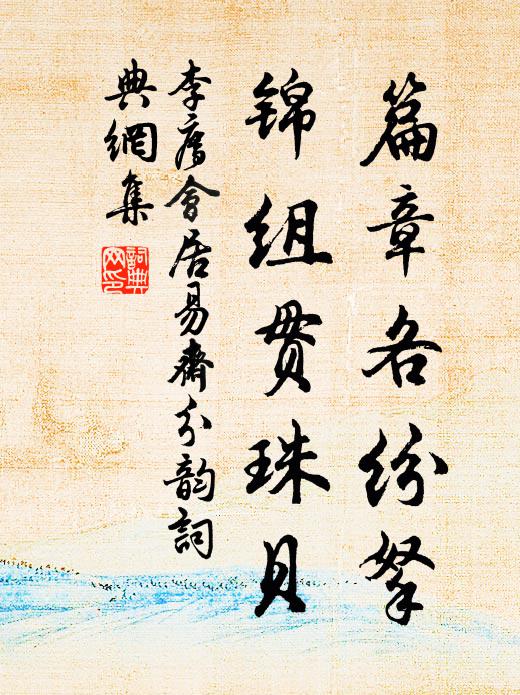 篇章各纷拏
锦组贯珠贝
李廌會居易齋分韵詞
典網集
詞典
网印